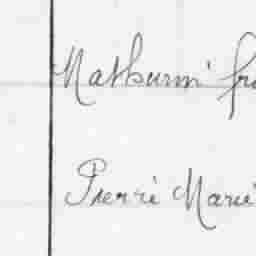 Mathurin fra
Pierre Marie